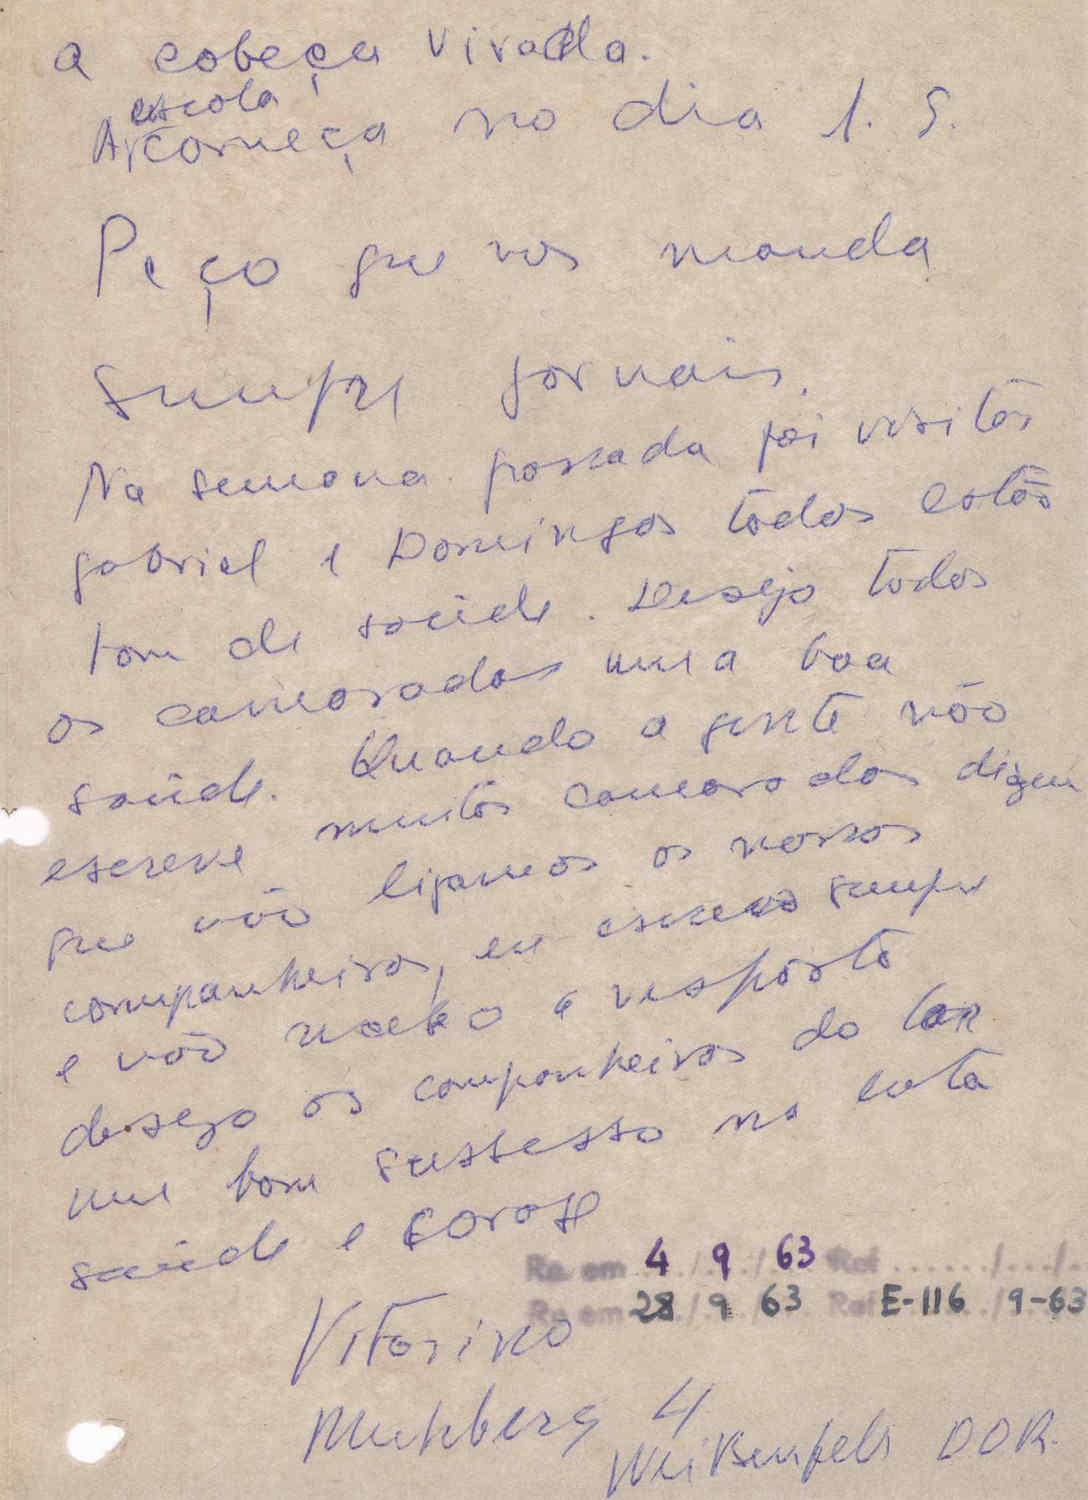 a cabeça virada.
escola
A começa no dia 1. 9.
Peço que nos manda
sempre jornais.
Na semana passada foi visitar
gabriel e Domingos todos estão
bom de saúde. Desejo todos
os camaradas uma boa
saúde. Quando a gente não
escreve muitos camaradas dizem
que não ligamos os nossos
companheiros, eu escrevo sempre
e não recebo a resposta
desejo os companheiros do lar
um bom sussesso na luta
saúde e corage
Re em 4 / 9 / 63 Ref ....../.../..
Re em 28 / 9 / 63 Ref E-116 / 9-63
Vitorino
4
Weißenfels DDR.